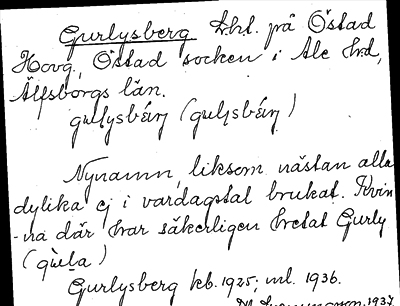 Gurlysberg Lht. på Östad
Hovg, Östad socken i Ale hrd,
Älfsborgs län.
Nynamn, liksom nästan alla
dylika ej i vardagstal brukat. Kvin
-na där har säkerligen hetat Gurly
Gurlysberg kb. 1925; ml. 1936.
1937